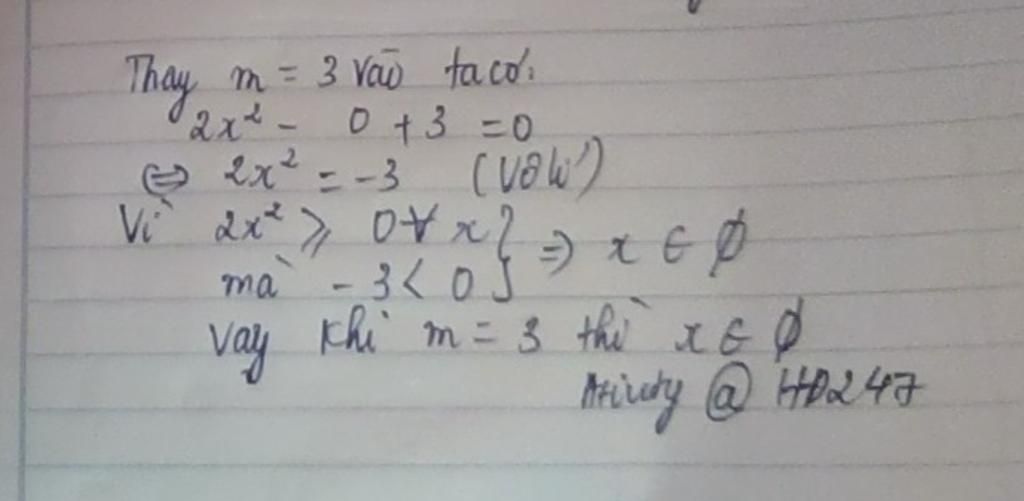 Thay m = 3 vào ta có:
2x² - 0 + 3 = 0
⇔ 2x² = -3 (Vô lí)
Vì 2x² ⩾ 0 ∀ x } ⇒ x ∈ ∅
mà - 3 < 0
Vay khi m = 3 thì x ∈ ∅
@ HD247